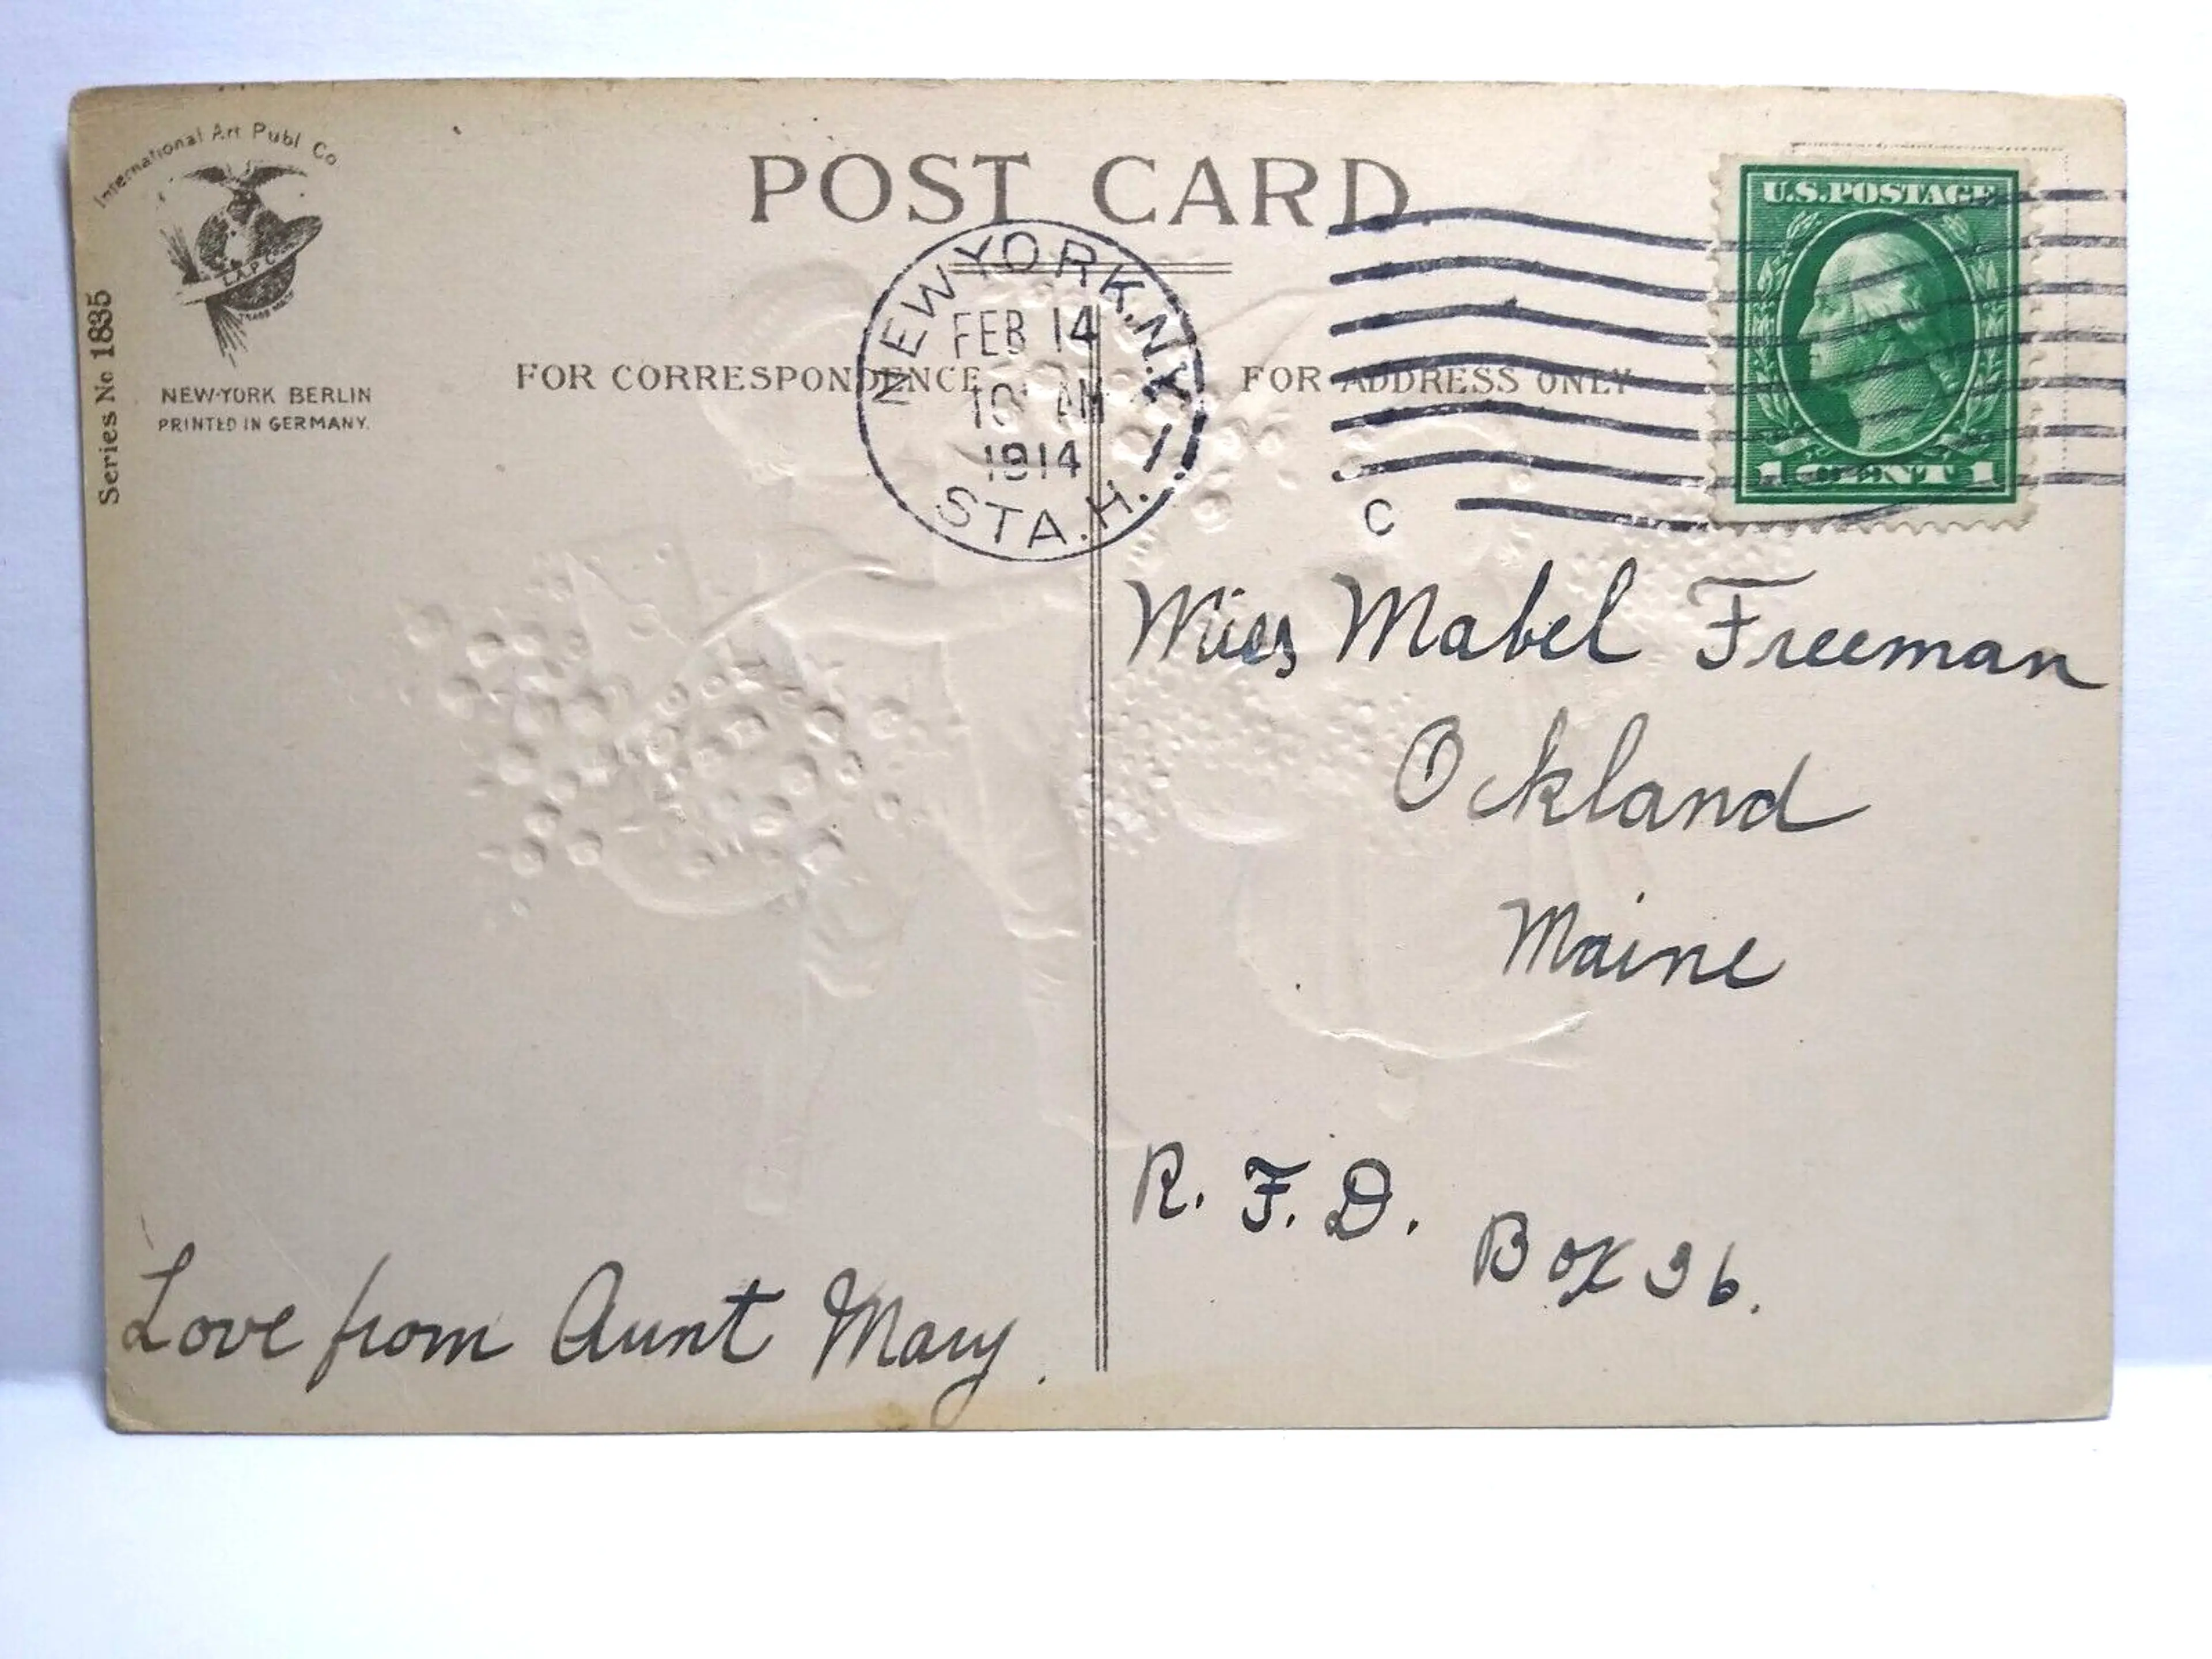 International Art Publ Co
POST CARD
U.S.POSTAGE
I.A.P.C.
TRADE MARK
NEW-YORK BERLIN
PRINTED IN GERMANY.
Series No 1835
NEW YORK, N.Y.
FEB 14
10 AM
1914
STA. H.
FOR CORRESPONDENCE
FOR ADDRESS ONLY
1 CENT 1
C
Miss Mabel Freeman
Ockland
Maine
R. F. D.
Box 36.
Love from Aunt Mary.